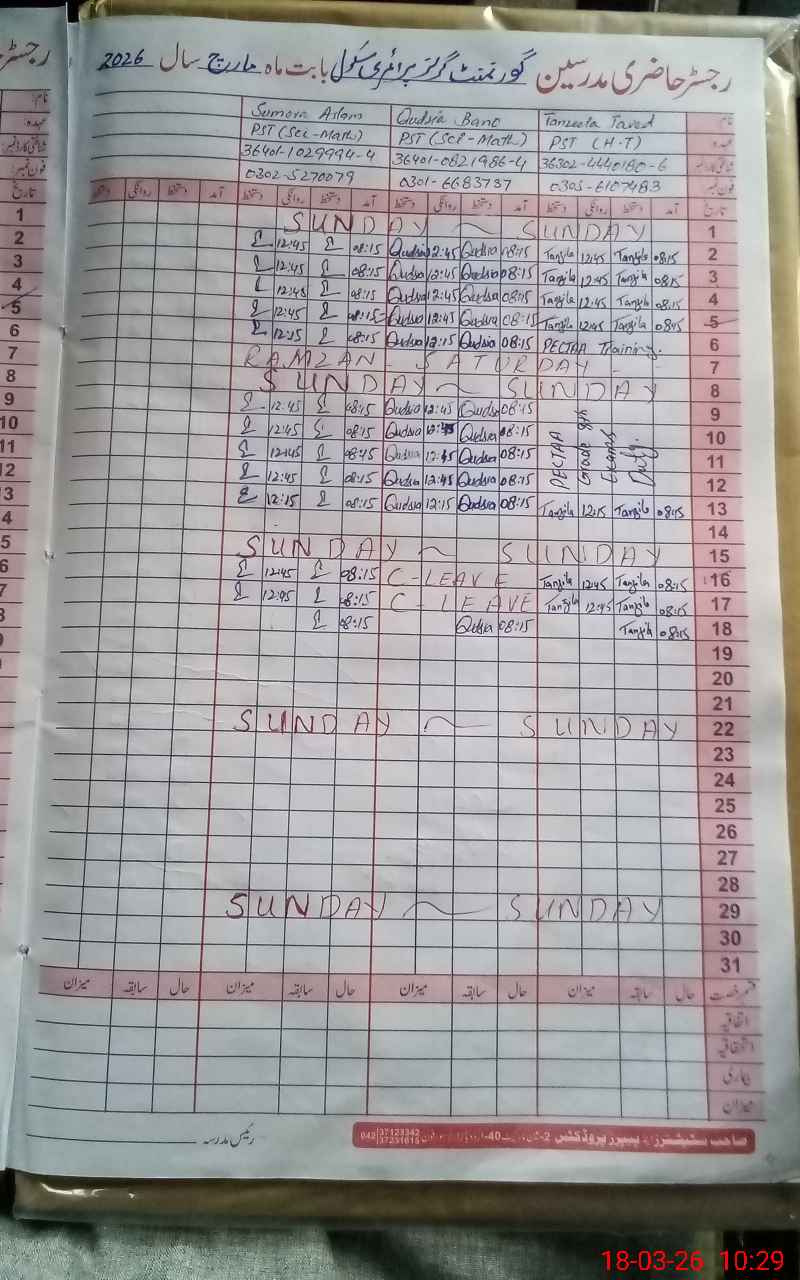 رجسٹر حاضری مدرسین گورنمنٹ گرلز پرائمری سکول بابت ماہ مارچ سال 2026
نام Tanzeela Javed Qudsia Bano Sumera Aslam
عہدہ PST (H-T) PST (Sci-Math) PST (Sci-Math)
شناختی کارڈ نمبر 36302-4440180-6 36401-0821986-4 36401-1029994-4
فون نمبر 0305-6107483 0301-6683737 0302-5270079
تاریخ آمد دستخط روانگی دستخط آمد دستخط روانگی دستخط آمد دستخط روانگی دستخط آمد دستخط روانگی دستخط
1 SUNDAY ~ SUNDAY
2 08:15 Tanzila 12:45 Tanzila 08:15 Qudsia 12:45 Qudsia 08:15 12:45
3 08:15 Tanzila 12:45 Tanzila 08:15 Qudsia 12:45 Qudsia 08:15 12:45
4 08:15 Tanzila 12:45 Tanzila 08:15 Qudsia 12:45 Qudsia 08:15 12:45
5 08:15 Tanzila 12:45 Tanzila 08:15 Qudsia 12:45 Qudsia 08:15 12:45
6 PECTAA Training. 08:15 Qudsia 12:15 Qudsia 08:15 12:15
7 RAMZAN - SATURDAY - -
8 SUNDAY ~ SUNDAY
9 08:15 Qudsia 12:45 Qudsia 08:15 12:45
10 08:15 Qudsia 12:45 Qudsia 08:15 12:45
11 08:15 Qudsia 12:45 Qudsia 08:15 12:45
12 08:15 Qudsia 12:45 Qudsia 08:15 12:45
PECTAA Grade 8th Exams Duty.
13 08:15 Tanzila 12:15 Tanzila 08:15 Qudsia 12:15 Qudsia 08:15 12:15
14
15 SUNDAY ~ SUNDAY
16 08:15 Tanzila 12:45 Tanzila C-LEAVE 08:15 12:45
17 08:15 Tanzila 12:45 Tanzila C-LEAVE 08:15 12:45
18 08:15 Tanzila 08:15 Qudsia 08:15
19
20
21
22 SUNDAY ~ SUNDAY
23
24
25
26
27
28
29 SUNDAY ~ SUNDAY
30
31
قسم رخصت حال سابقہ میزان حال سابقہ میزان حال سابقہ میزان حال سابقہ میزان
اتفاقیہ
استحقاقیہ
بیماری
میزان
رئیس مدرسہ
صاحب سٹیشنرز اینڈ پیپرز پروڈکٹس
042 37123342
37231615
18-03-26 10:29